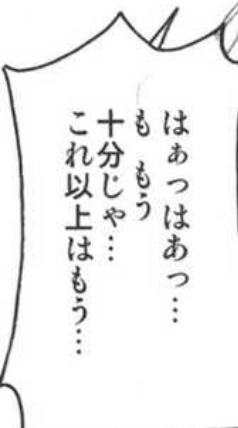 はぁっはあっ…
も もう
十分じゃ…
これ以上はもう…